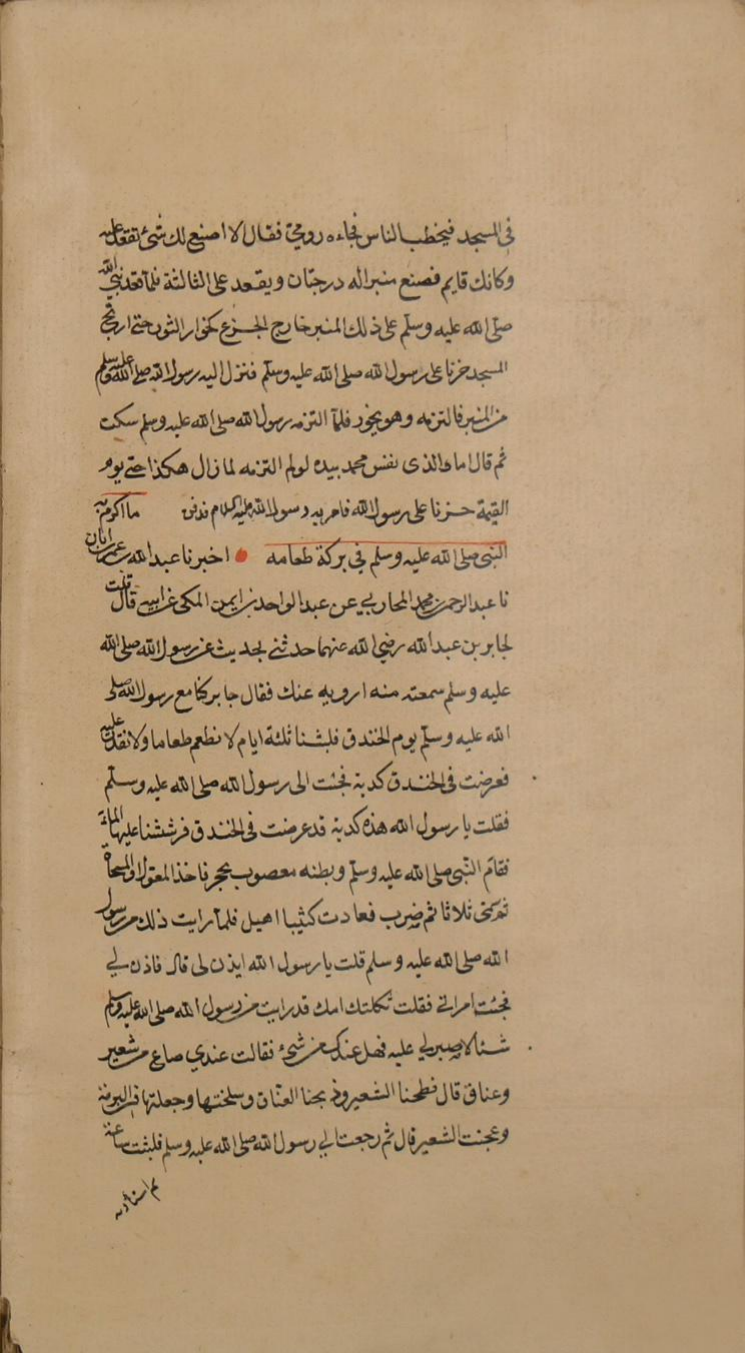 في المسجد فيخطب الناس فجاءه رومي فقال الا اصنع لك شئ تقعد عليه
وكانك قايم فصنع منبرا له درجتان ويقعد على الثالثة فلما قعد نبي الله
صلى الله عليه وسلم على ذلك المنبر خار الجزع كخوار الثور حتى ارتج
المسجد حزنا على رسول الله صلى الله عليه وسلم فنزل اليه رسول الله صلى الله عليه وسلم
من المنبر فالتزمه وهو يخور فلما التزمه رسول الله صلى الله عليه وسلم سكت
ثم قال اما والذى نفس محمد بيده لو لم التزمه لما زال هكذا حتى يوم
القيمة حزنا على رسول الله فامر به رسول الله عليه السلام فدفن ما اكرم به
النبى صلى الله عليه وسلم في بركة طعامه اخبرنا عبد الله بن عمر بن ابان
نا عبد الرحمن بن محمد المحاربي عن عبد الواحد بن ايمن المكى عن ابيه قال قلت
لجابر بن عبد الله رضي الله عنهما حدثني بحديث عن رسول الله صلى الله
عليه وسلم سمعته منه ارويه عنك فقال جابر كنا مع رسول الله صلى
الله عليه وسلم يوم الخندق فلبثنا ثلثة ايام لا نطعم طعاما ولا نقدر عليه
فعرضت فى الخندق كدية فجئت الى رسول الله صلى الله عليه وسلم
فقلت يا رسول الله هذه كدية قد عرضت فى الخندق فرششنا عليها الماء
فقام النبى صلى الله عليه وسلم وبطنه معصوب بحجر فاخذ المعول او المسحاة
ثم سمى ثلاثا ثم ضرب فعادت كثيبا اهيل فلما رايت ذلك من رسول
الله صلى الله عليه وسلم قلت يا رسول الله ايذن لى قال فاذن لي
فجئت امراتي فقلت ثكلتك امك قد رايت من رسول الله صلى الله عليه وسلم
شئا لا صبر لي عليه فهل عندك من شئ فقالت عندي صاع من شعير
وعناق قال فطحنا الشعير وذبحنا العناق وسلختها وجعلتها في البرمة
وعجنت الشعير قال ثم رجعت الي رسول الله صلى الله عليه وسلم فلبثت ساعة